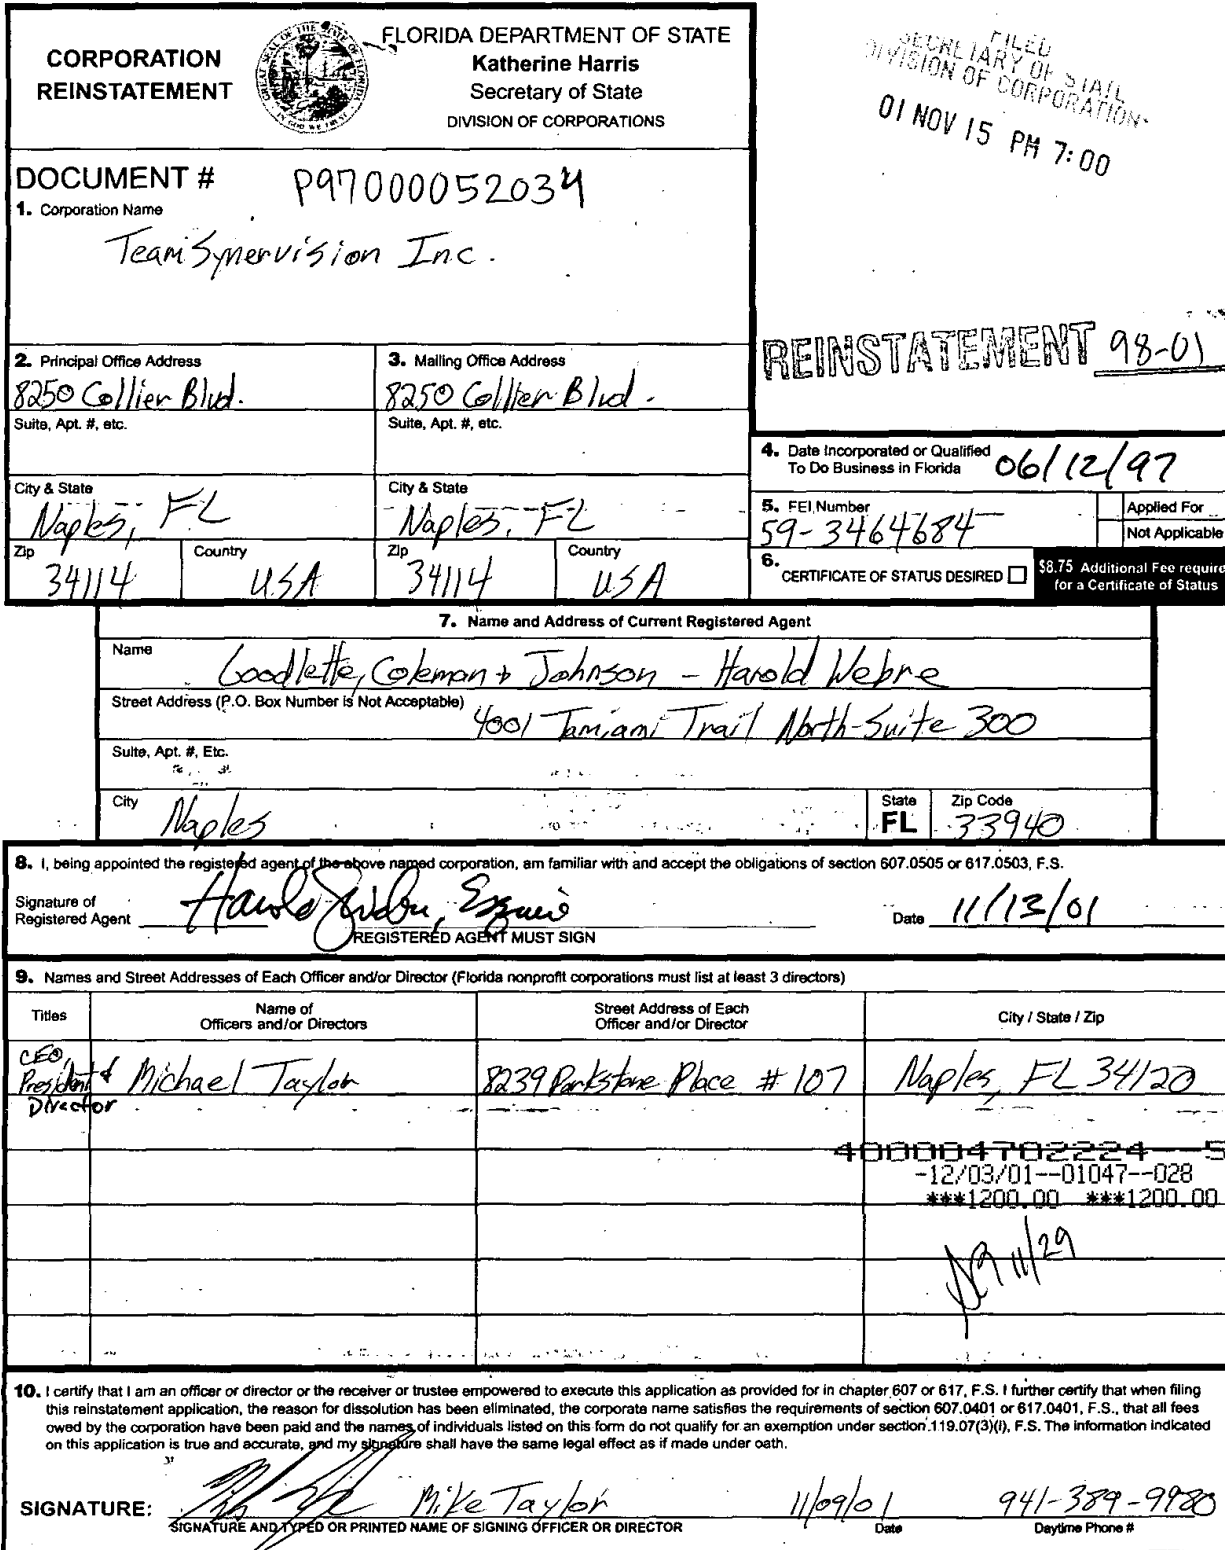 CORPORATION
REINSTATEMENT
FLORIDA DEPARTMENT OF STATE
Katherine Harris
Secretary of State
DIVISION OF CORPORATIONS
FILED
SECRETARY OF STATE
DIVISION OF CORPORATION
01 NOV 15 PM 7:00
DOCUMENT # P97000052034
1. Corporation Name
TeamSynervision Inc.
REINSTATEMENT 98-01
2. Principal Office Address
8250 Collier Blvd.
Suite, Apt. #, etc.
City & State
Naples, FL
Zip
34114
Country
USA
3. Mailing Office Address
8250 Collier Blvd.
Suite, Apt. #, etc.
City & State
Naples, FL
Zip
34114
Country
USA
4. Date Incorporated or Qualified
To Do Business in Florida 06/12/97
5. FEI Number
59-3464684
Applied For
Not Applicable
6. CERTIFICATE OF STATUS DESIRED
$8.75 Additional Fee require
for a Certificate of Status
7. Name and Address of Current Registered Agent
Name
Goodlette, Coleman + Johnson - Harold Webre
Street Address (P.O. Box Number is Not Acceptable)
4001 Tamiami Trail North-Suite 300
Suite, Apt. #, Etc.
City
Naples
State
FL
Zip Code
33940
8. I, being appointed the registered agent of the above named corporation, am familiar with and accept the obligations of section 607.0505 or 617.0503, F.S.
Signature of
Registered Agent
Harold Esquire
REGISTERED AGENT MUST SIGN
Date 11/13/01
9. Names and Street Addresses of Each Officer and/or Director (Florida nonprofit corporations must list at least 3 directors)
Titles
Name of
Officers and/or Directors
Street Address of Each
Officer and/or Director
City / State / Zip
CEO,
President &
Director
Michael Taylor
8239 Parkstone Place #107
Naples, FL 34120
400004702224--5
-12/03/01--01047--028
***1200.00 ***1200.00
11/29
10. I certify that I am an officer or director or the receiver or trustee empowered to execute this application as provided for in chapter 607 or 617, F.S. I further certify that when filing
this reinstatement application, the reason for dissolution has been eliminated, the corporate name satisfies the requirements of section 607.0401 or 617.0401, F.S., that all fees
owed by the corporation have been paid and the names of individuals listed on this form do not qualify for an exemption under section 119.07(3)(i), F.S. The information indicated
on this application is true and accurate, and my signature shall have the same legal effect as if made under oath.
SIGNATURE: Mike Taylor 11/09/01 941-389-9980
SIGNATURE AND TYPED OR PRINTED NAME OF SIGNING OFFICER OR DIRECTOR
Date
Daytime Phone #